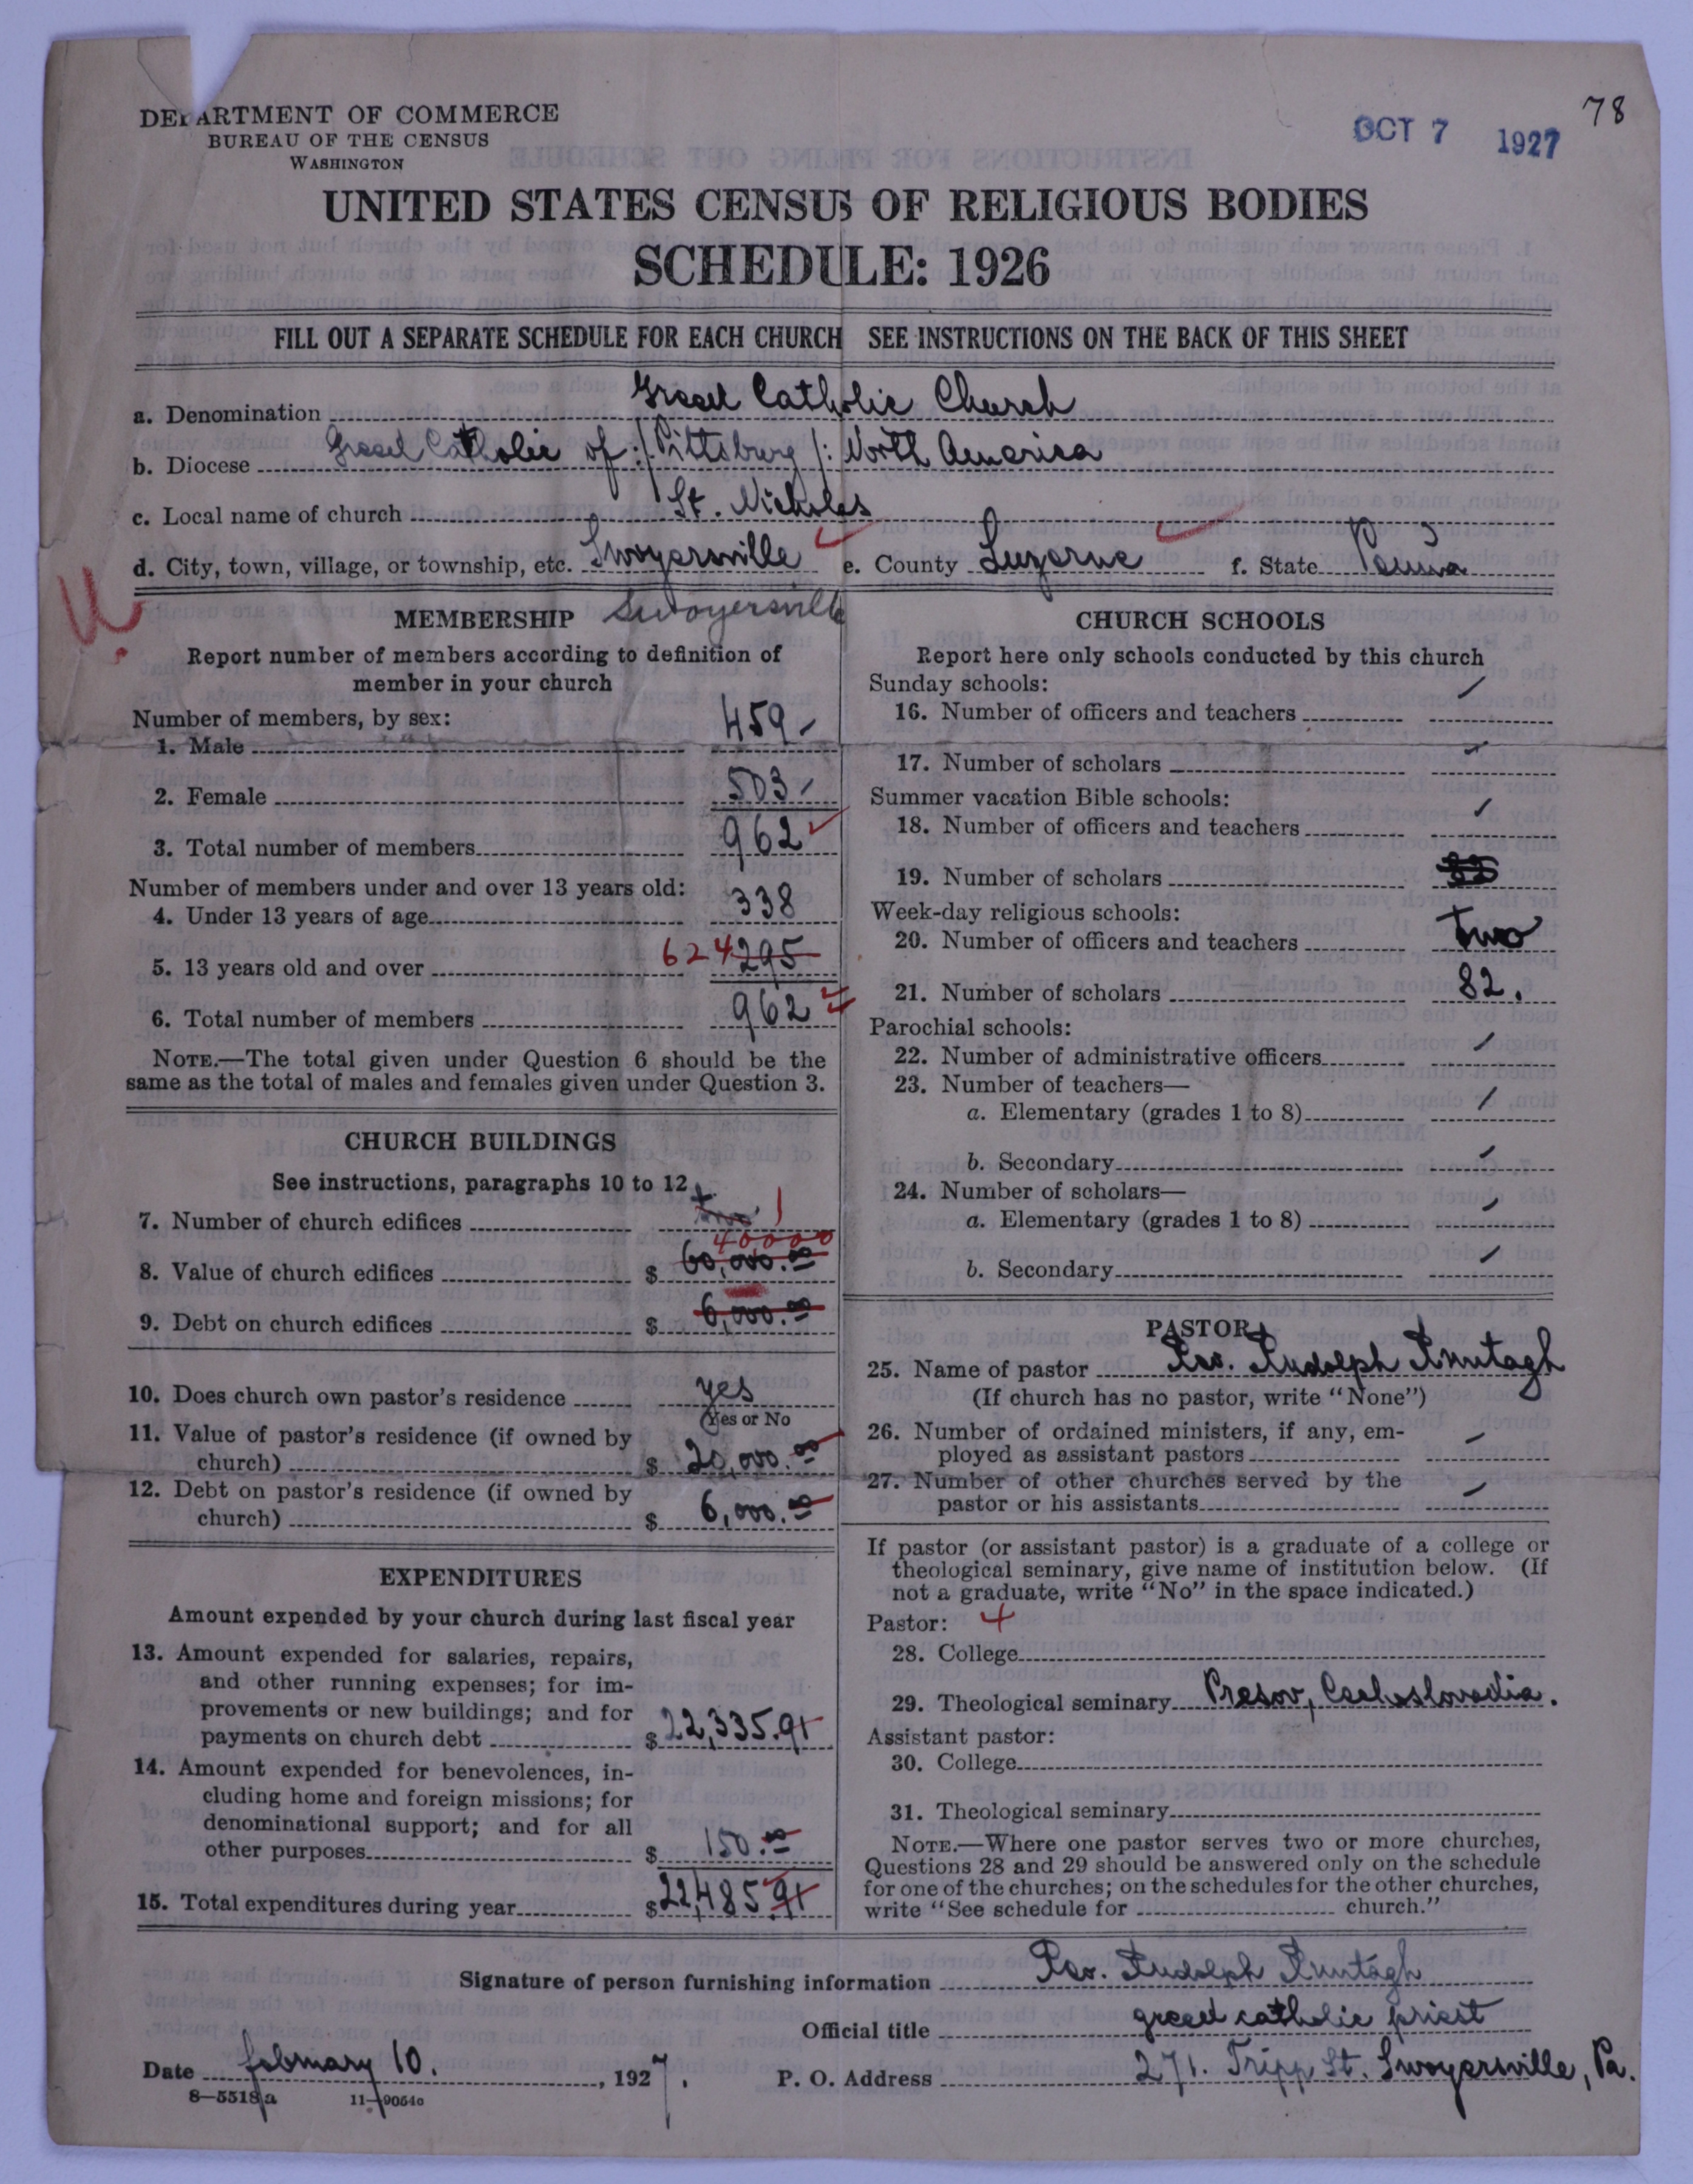 78
OCT 7 1927
DEPARTMENT OF COMMERCE
BUREAU OF THE CENSUS
WASHINGTON
UNITED STATES CENSUS OF RELIGIOUS BODIES
SCHEDULE: 1926
FILL OUT A SEPARATE SCHEDULE FOR EACH CHURCH SEE INSTRUCTIONS ON THE BACK OF THIS SHEET
a. Denomination Greek Catholic Church
b. Diocese Greek Catholic of :/Pittsburg/: North America
c. Local name of church St. Nicholas
d. City, town, village, or township, etc. Swoyersville e. County Luzerne f. State Penna
MEMBERSHIP Swoyersville
Report number of members according to definition of
member in your church
Number of members, by sex:
1. Male 459
2. Female 503
3. Total number of members 962
Number of members under and over 13 years old:
4. Under 13 years of age 338
5. 13 years old and over 624 295
6. Total number of members 962
NOTE.—The total given under Question 6 should be the
same as the total of males and females given under Question 3.
CHURCH BUILDINGS
See instructions, paragraphs 10 to 12
7. Number of church edifices 1
40000
8. Value of church edifices $ 60,000.00
9. Debt on church edifices $ 6,000.00
10. Does church own pastor's residence yes
(Yes or No
11. Value of pastor's residence (if owned by
church) $ 20,000.00
12. Debt on pastor's residence (if owned by
church) $ 6,000.00
EXPENDITURES
Amount expended by your church during last fiscal year
13. Amount expended for salaries, repairs,
and other running expenses; for im-
provements or new buildings; and for
payments on church debt $ 22,335.91
14. Amount expended for benevolences, in-
cluding home and foreign missions; for
denominational support; and for all
other purposes $ 150.00
15. Total expenditures during year $ 22,485.91
CHURCH SCHOOLS
Report here only schools conducted by this church
Sunday schools:
16. Number of officers and teachers
17. Number of scholars
Summer vacation Bible schools:
18. Number of officers and teachers
19. Number of scholars
Week-day religious schools:
20. Number of officers and teachers two
21. Number of scholars 82.
Parochial schools:
22. Number of administrative officers
23. Number of teachers—
a. Elementary (grades 1 to 8)
b. Secondary
24. Number of scholars—
a. Elementary (grades 1 to 8)
b. Secondary
PASTOR
25. Name of pastor Rev. Rudolph
(If church has no pastor, write "None")
26. Number of ordained ministers, if any, em-
ployed as assistant pastors
27. Number of other churches served by the
pastor or his assistants
If pastor (or assistant pastor) is a graduate of a college or
theological seminary, give name of institution below. (If
not a graduate, write "No" in the space indicated.)
Pastor: 4
28. College
29. Theological seminary Presov,
Assistant pastor:
30. College
31. Theological seminary
NOTE.—Where one pastor serves two or more churches,
Questions 28 and 29 should be answered only on the schedule
for one of the churches; on the schedules for the other churches,
write "See schedule for church."
Signature of person furnishing information Rev. Rudolph
Official title greek catholic priest
Date february 10. , 1927. P. O. Address 271. Tripp St. Swoyersville, Pa.
8—5518a 11—9054c